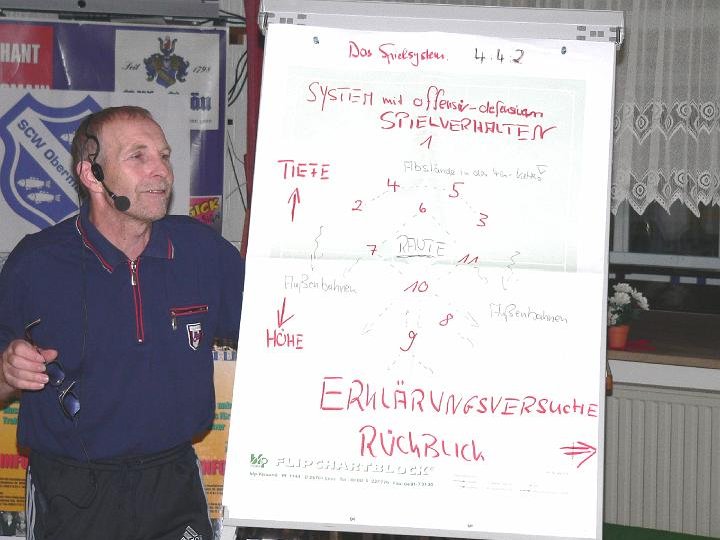 HANT
Seit 1798
SCW Oberm
GICK
INFO
INFO
Das Spielsystem. 4.4.2
SYSTEM mit offensiv-defensivem
SPIELVERHALTEN
1
TIEFE
Abstände in der 4er-Kette
4 5
2 6 3
7 RAUTE 11
Außenbahnen 10 Außenbahnen
HÖHE 9 8
ERKLÄRUNGSVERSUCHE
RÜCKBLICK
FLIPCHARTBLOCK